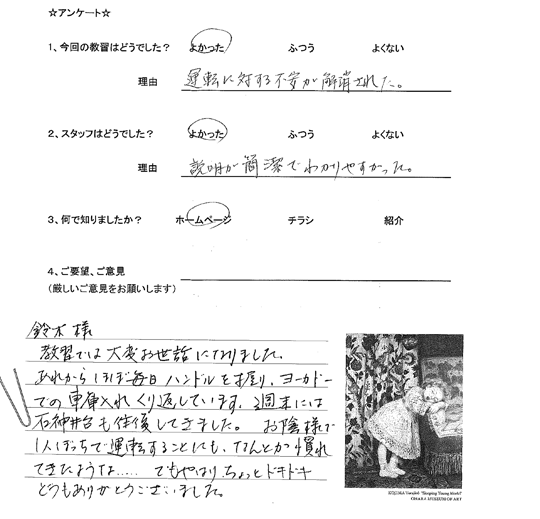 ☆アンケート☆
1、今回の教習はどうでした? よかった ふつう よくない
理由 運転に対する不安が解消された。
2、スタッフはどうでした? よかった ふつう よくない
理由 説明が簡潔でわかりやすかった。
3、何で知りましたか? ホームページ チラシ 紹介
4、ご要望、ご意見
(厳しいご意見をお願いします)
鈴木様
教習では大変お世話になりました。
あれからほぼ毎日ハンドルを握り、ヨーカドー
での車庫入れくり返しています。週末には
石神井台も往復してきました。お陰様で
1人ぼっちで運転することにも、なんとか慣れ
てきたような..... でもやはりちょっとドキドキ
どうもありがとうございました。
OHARA MUSEUM OF ART